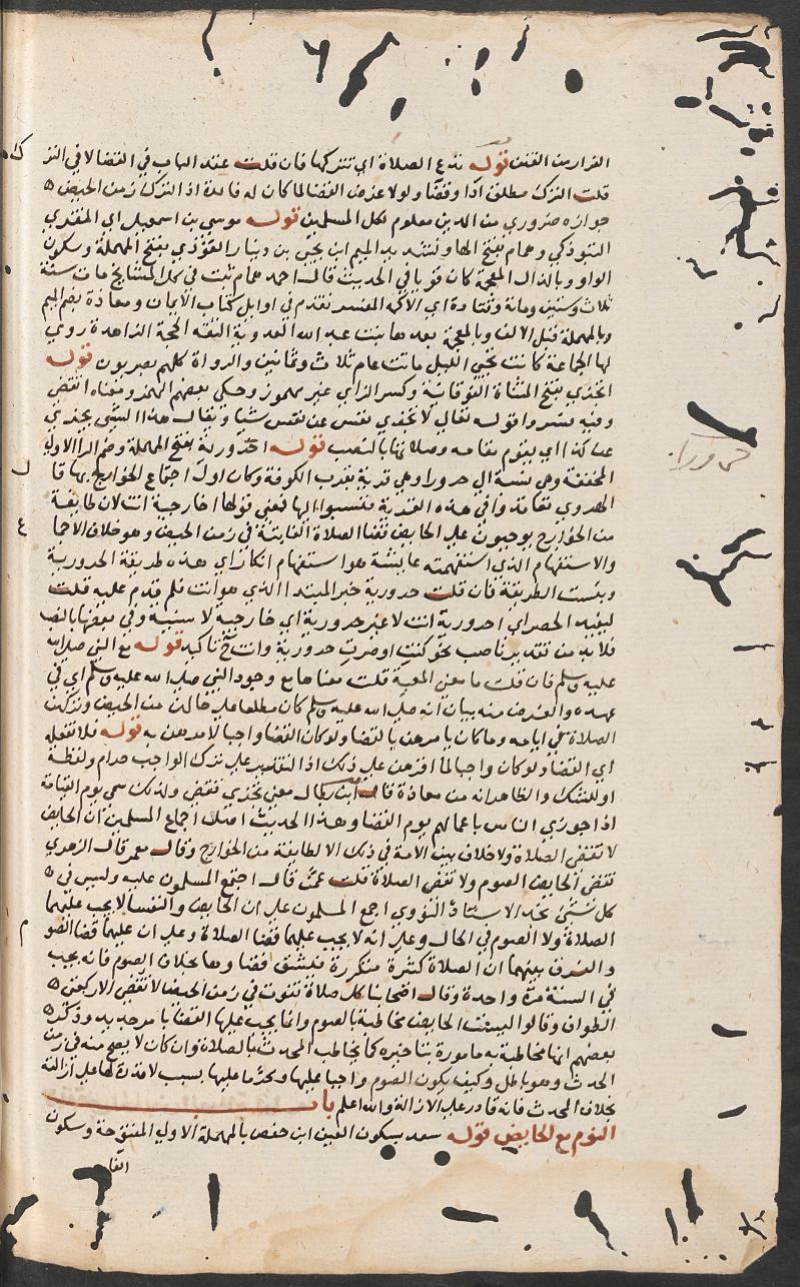 الفرار من الفتن قوله تدع الصلاة اي تتركها فان قلت عقد الباب في القضا لا في الترك
قلت الترك مطلق اداو قضا ولولا عرض القضا لما كان له فائدة اذ الترك زمن الحيض
جوازه ضروري من الدين معلوم لكل المسلمين قوله موسى بن اسمعيل اي المنقري
التبوذكي وهمام بفتح الها وتشديد الميم ابن يحيى بن دينار العوذي بفتح المهملة وسكون
الواو وبالذال المعجمة كان قويا في الحديث قال احمد همام ثبت في كل المشايخ مات سنة
ثلاث وستين ومائة وقتادة اي الاكمه المفسر تقدم في اوايل كتاب الايمان ومعاذة بضم الميم
وبالمهملة قبل الالف وبالمعجمة بعدها بنت عبد الله العدوية الثقة الحجة الزاهدة روي
لها الجماعة كانت تحيي الليل ماتت عام ثلاث وثمانين والرواة كلهم بصريون قوله
اتجزي بفتح المثناة الفوقانية وكسر الزاي غير مهموز وحكي بعضهم الهمز ومعناه اتقضي
وفيه فسروا قوله تعالى لا تجزي نفس عن نفس شيا ويقال هذا الشي يجزي
عن كذا اي يقوم مقامه وصلاتها بالنصب قوله احرورية بفتح المهملة وضم الرا الاولي
المخففة وهي نسبة الي حرورا وهي قرية بقرب الكوفة وكان اول اجتماع الخوارج بها قا
الهروي تعاقدوا في هذه القرية فنسبوا اليها فمعني قولها اخارجية انت لان طايفة
من الخوارج يوجبون علي الحايض قضا الصلاة الفايتة في زمن الحيض وهو خلاف الاجما
والاستفهام الذي استفهمته عايشة هو استفهام انكار اي هذه طريقة الحرورية
وبئست الطريقة فان قلت حرورية خبر المبتدا الذي هو انت فلم قدم عليه قلت
ليفيد الحصر اي احرورية انت لا غير حرورية اي خارجية لا سنية وفي بعضها بالنصب
فلا بد من تقدير ناصب نحو كنت او صرت حرورية وانت ح تاكيد قوله مع النبي صلي الله
عليه وسلم فان قلت ما معني المعية قلت معناها مع وجود النبي صلي الله عليه وسلم اي في
عهده والغرض منه بيان انه صلي الله عليه وسلم كان مطلعا علي حالهن من الحيض وتركهن
الصلاة في ايامه وما كان يامرهن بالقضا ولو كان القضا واجبا لامرهن به قوله فلا نفعله
اي القضا ولو كان واجبا لما اقرهن علي ذلك اذ التقرير علي ترك الواجب حرام ولفظة
او للشك والظاهر انه من معاذة قال ابن بطال معني تجزي تقضي ولذلك سمي يوم القيامة
اذا جوزي الناس باعمالهم يوم القضا وهذا الحديث اصل اجماع المسلمين ان الحايض
لا تقضي الصلاة ولا خلاف بين الامة في ذلك الا لطايفة من الخوارج وقال معمر قال الزهري
تقضي الحايض الصوم ولا تقضي الصلاة قلت عمن قال اجتمع المسلمون عليه وليس في
كل شي نجد الاسناد النووي اجمع المسلمون علي ان الحايض والنفسا لا يجب عليهما
الصلاة ولا الصوم في الحال وعلي انه لا يجب عليهما قضا الصلاة وعلي ان عليهما قضا الصو
والفرق بينهما ان الصلاة كثيرة متكررة فيشق قضاوها بخلاف الصوم فانه يجب
في السنة مرة واحدة وقال اصحابنا كل صلاة تفوت في زمن الحيض لا تقضي الا ركعتي
الطواف وقالوا ليست الحايض مخاطبة بالصوم وانما يجب عليها القضا بامر جديد وذكر
بعضهم انها مخاطبة به مامورة بتاخيره كما يخاطب المحدث بالصلاة وان كان لا يصح منه في زمن
الحدث وهو باطل وكيف يكون الصوم واجبا عليها ومحرما عليها بسبب لا قدرة لها علي ازالته
بخلاف المحدث فانه قادر علي الازالة والله اعلم باب
النوم مع الحايض قوله سعد بسكون العين ابن حفص بالمهملة الاولي المفتوحة وسكون
الفا
حرورا